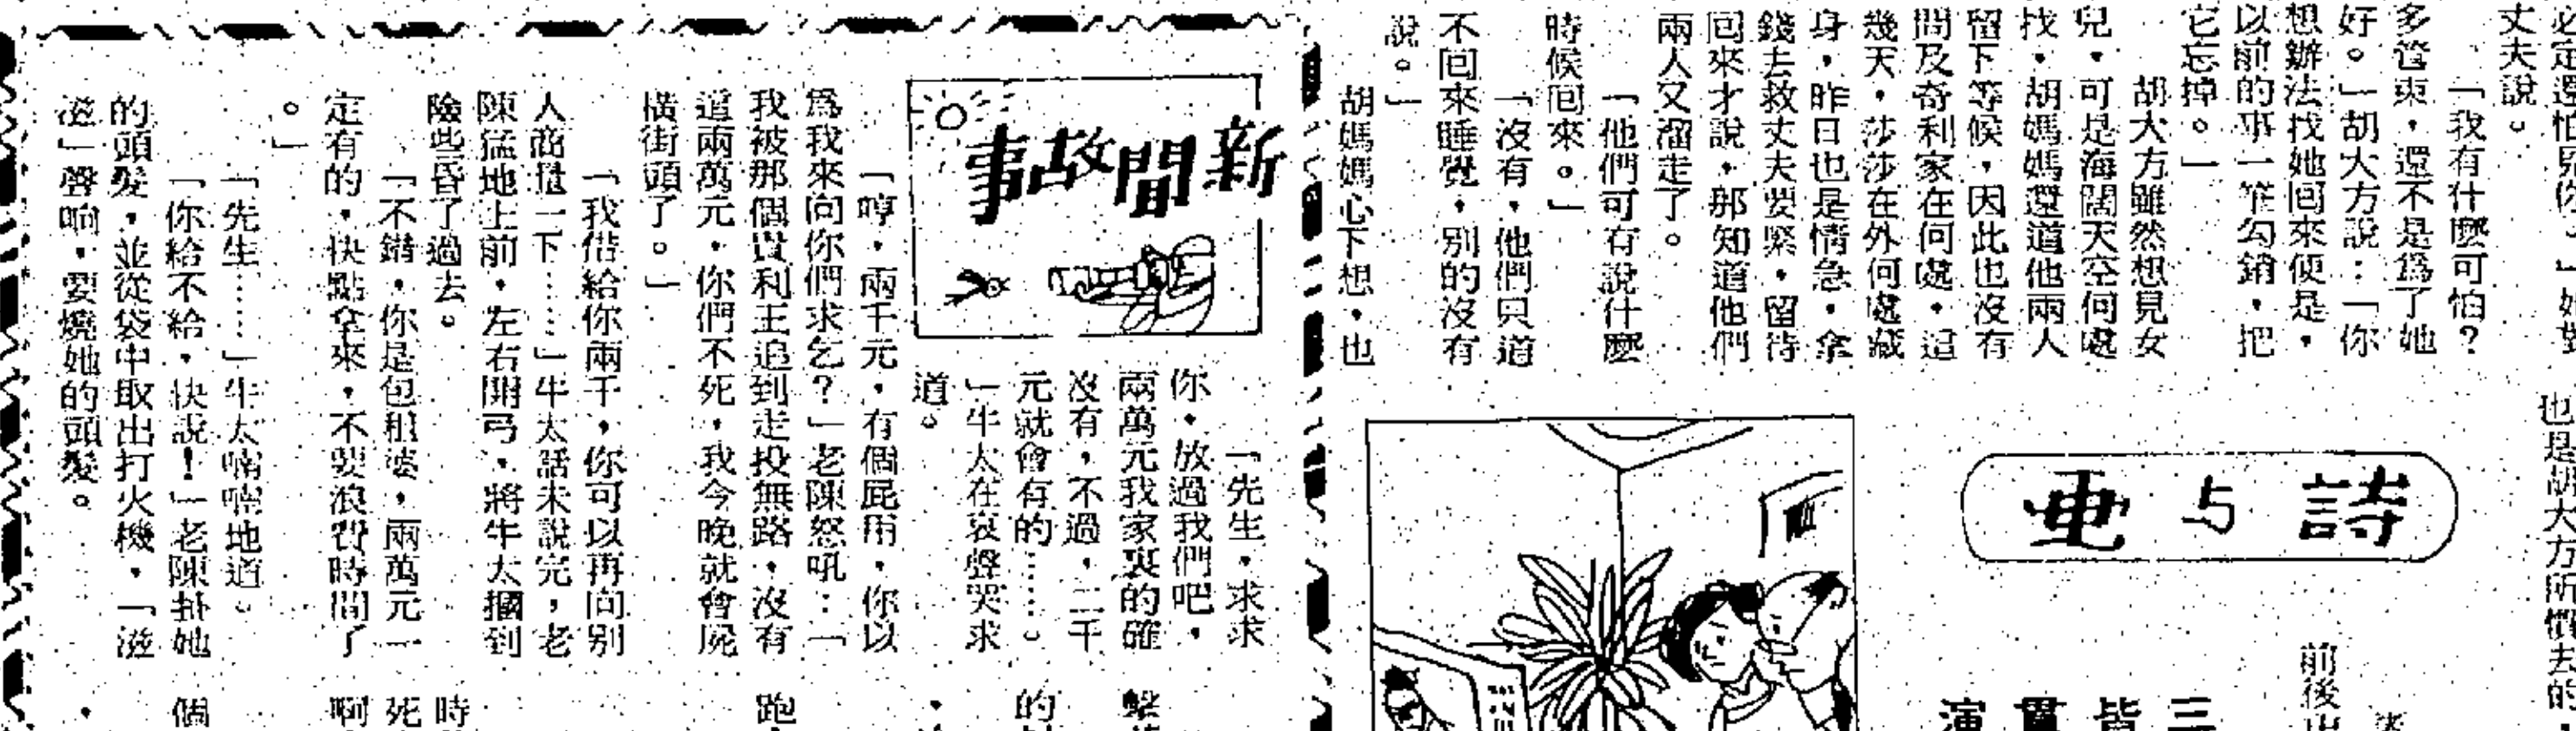 丈夫說。
「我有什麼可怕？
多管束，還不是爲了她
好。」胡大方說：「你
想辦法找她囘來便是，
以前的事一筆勾銷，把
它忘掉。」
胡大方雖然想見女
兒，可是海闊天空何處
找，胡媽媽還道他兩人
留下等候，因此也沒有
問及奇利家在何處，這
幾天，莎莎在外何處藏
身，昨日也是情急，拿
錢去救丈夫要緊，留待
囘來才說，那知道他們
兩人又溜走了。
「他們可有說什麼
時候囘來。」
「沒有，他們只道
不囘來睡覺，別的沒有
說。」
胡媽媽心下想，也
也是胡大方所慣去的，
詩与画
前後出
三
皆
貫
演
新聞故事
「先生，求求
你，放過我們吧，
兩萬元我家裏的確
沒有，不過，二千
元就會有的……。
」牛太在哀聲哭求
道。
「哼，兩千元，有個屁用，你以
爲我來向你們求乞？」老陳怒吼：「
我被那個貴利王追到走投無路，沒有
道兩萬元，你們不死，我今晚就會屍
橫街頭了。」
「我借給你兩千，你可以再向別
人商量一下……」牛太話未說完，老
陳猛地上前，左右開弓，將牛太摑到
險些昏了過去。
「不錯，你是包租婆，兩萬元一
定有的，快點拿來，不要浪費時間了
。」
「先生……」牛太喃喃地道。
「你給不給，快說！」老陳掛她
的頭髮，並從袋中取出打火機，「滋
滋」聲响，要燒她的頭髮。
擊
的
跑
時
死
啊
個